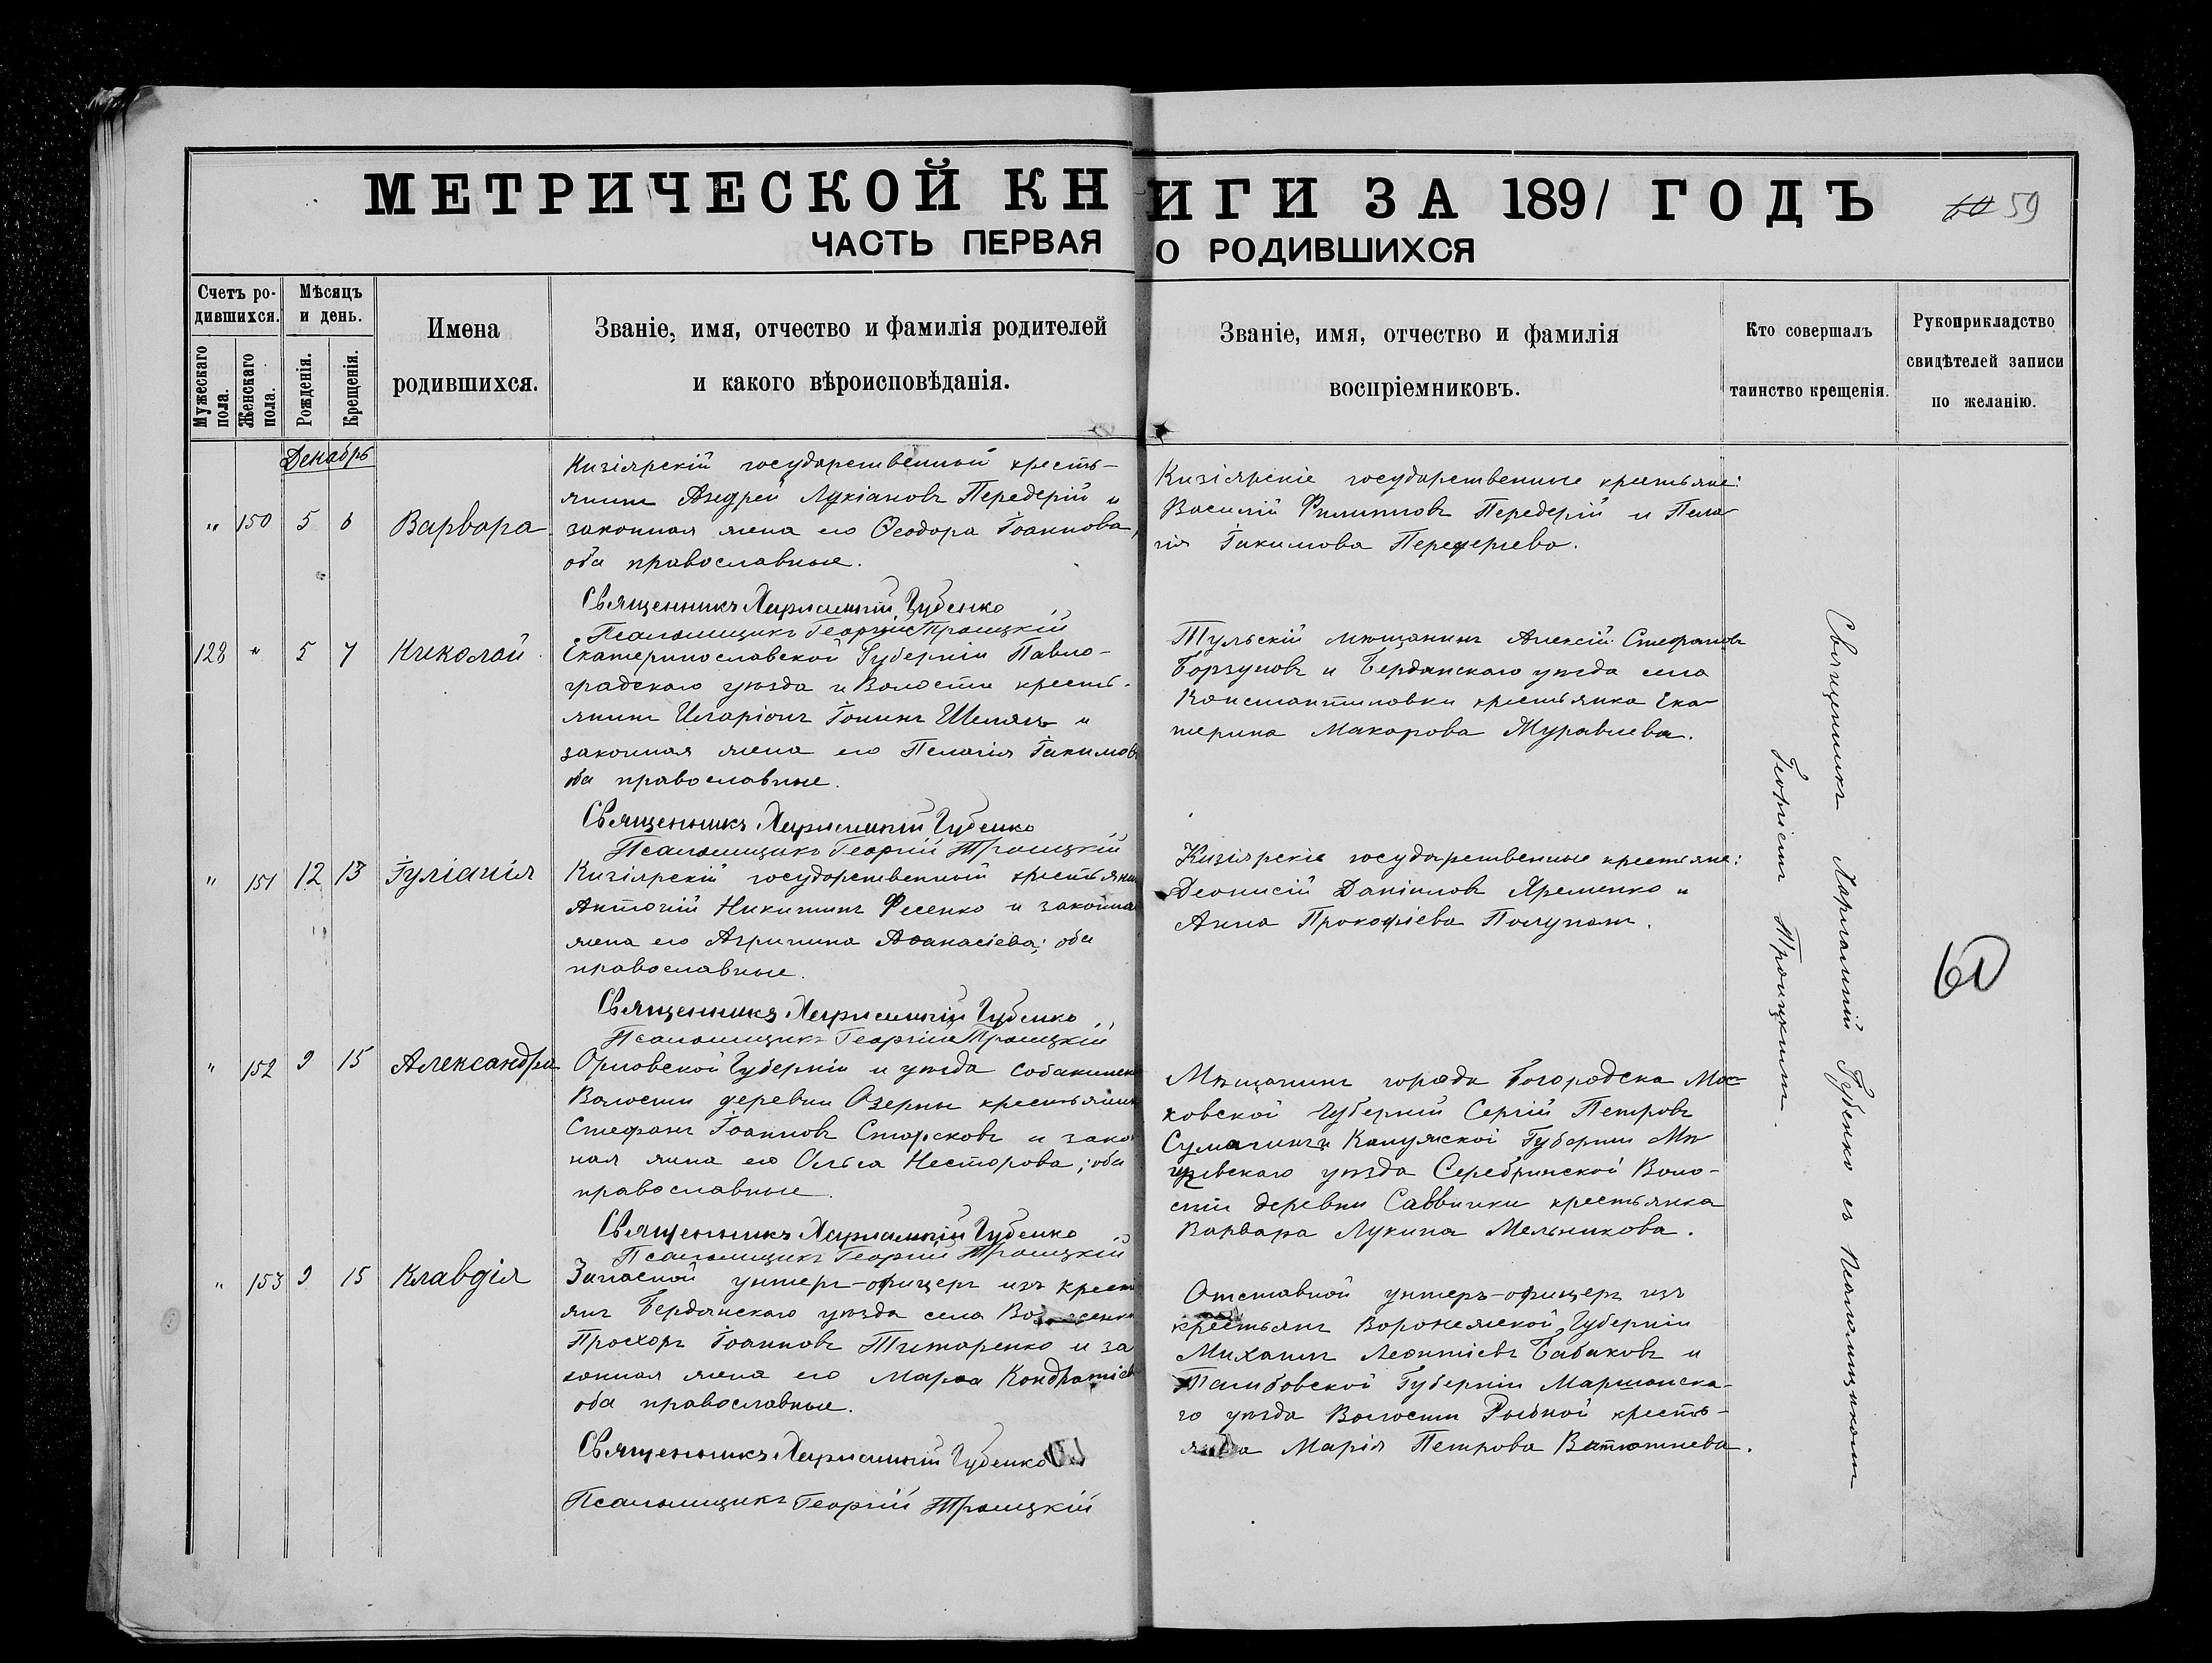 МЕТРИЧЕСКОЙ КНИГИ ЗА 1891 ГОДЪ
59
ЧАСТЬ ПЕРВАЯ О РОДИВШИХСЯ
Счетъ ро-
дившихся.
Мужескаго пола.
Женскаго пола.
Мѣсяцъ
и день.
Рожденія.
Крещенія.
Имена
родившихся.
Званіе, имя, отчество и фамилія родителей
и какого вѣроисповѣданія.
Званіе, имя, отчество и фамилія
воспріемниковъ.
Кто совершалъ
таинство крещенія.
Рукоприкладство
свидѣтелей записи
по желанію.
Декабрь
" 150 5 6 Варвара
Кизіярскій государственный кресть-
янинъ Андрей Лукіановъ Передерій и
законная жена его Ѳеодора Іоаннова,
оба православные.
Священникъ Харлампій Губенко
Псаломщикъ Георгій Троицкій
Кизіярскіе государственные крестьяне:
Василій Филипповъ Передерій и Пела-
гія Іакимова Передеріева.
128 " 5 7 Николай
Екатеринославской Губерніи Павло-
градскаго уѣзда и Волости кресть-
янинъ Иларіонъ Іонинъ и
законная жена его Пелагія Іакимов
оба православные.
Священникъ Харлампій Губенко
Псаломщикъ Георгій Троицкій
Тульскій мѣщанинъ Алексій Стефановъ
Борзуновъ и Бердянскаго уѣзда села
Константиновки крестьянка Ека-
терина Макарова Журавлева.
" 151 12 13 Іуліанія
Кизіярскій государственный крестьянин
Антоній Никитинъ Фесенко и законна
жена его Агрипина Аѳанасіева; оба
православные.
Священникъ Харлампій Губенко
Псаломщикъ Георгій Троицкій
Кизіярскіе государственные крестьяне:
Деонисій Даніиловъ Яременко и
Анна Прокофіева Полупан.
" 152 9 15 Александра
Орловской Губерніи и уѣзда Собакинск
Волости деревни Озерны крестьянин
Стефанъ Іоанновъ и зако
ная жена его Ольга Несторова; оба
православные.
Священникъ Харлампій Губенко
Псаломщикъ Георгій Троицкій
Мѣщанинъ города Богородска Мос-
ковской Губерніи Сергій Петровъ
и Калужской Губерніи
уѣзда Серебринской Воло-
сти деревни Саввички крестьянка
Варвара Лукина Мельникова.
" 153 9 15 Клавдія
Запасной унтеръ-офицеръ изъ крест
янъ Бердянскаго уѣзда села
Прохоръ Іоанновъ Титаренко и за
конная жена его Марѳа Кондратіев
оба православные.
Священникъ Харлампій Губенко
Псаломщикъ Георгій Троицкій
Отставной унтеръ-офицеръ изъ
крестьянъ Воронежской Губерніи
Михаилъ Леонтіевъ Бабаковъ и
Тамбовской Губерніи Моршанска-
го уѣзда Волости Рыбной кресть-
янка Марія Петрова Ватютнева.
Священникъ Харлампій Губенко съ Псаломщикомъ
Георгіемъ Троицкимъ.
60